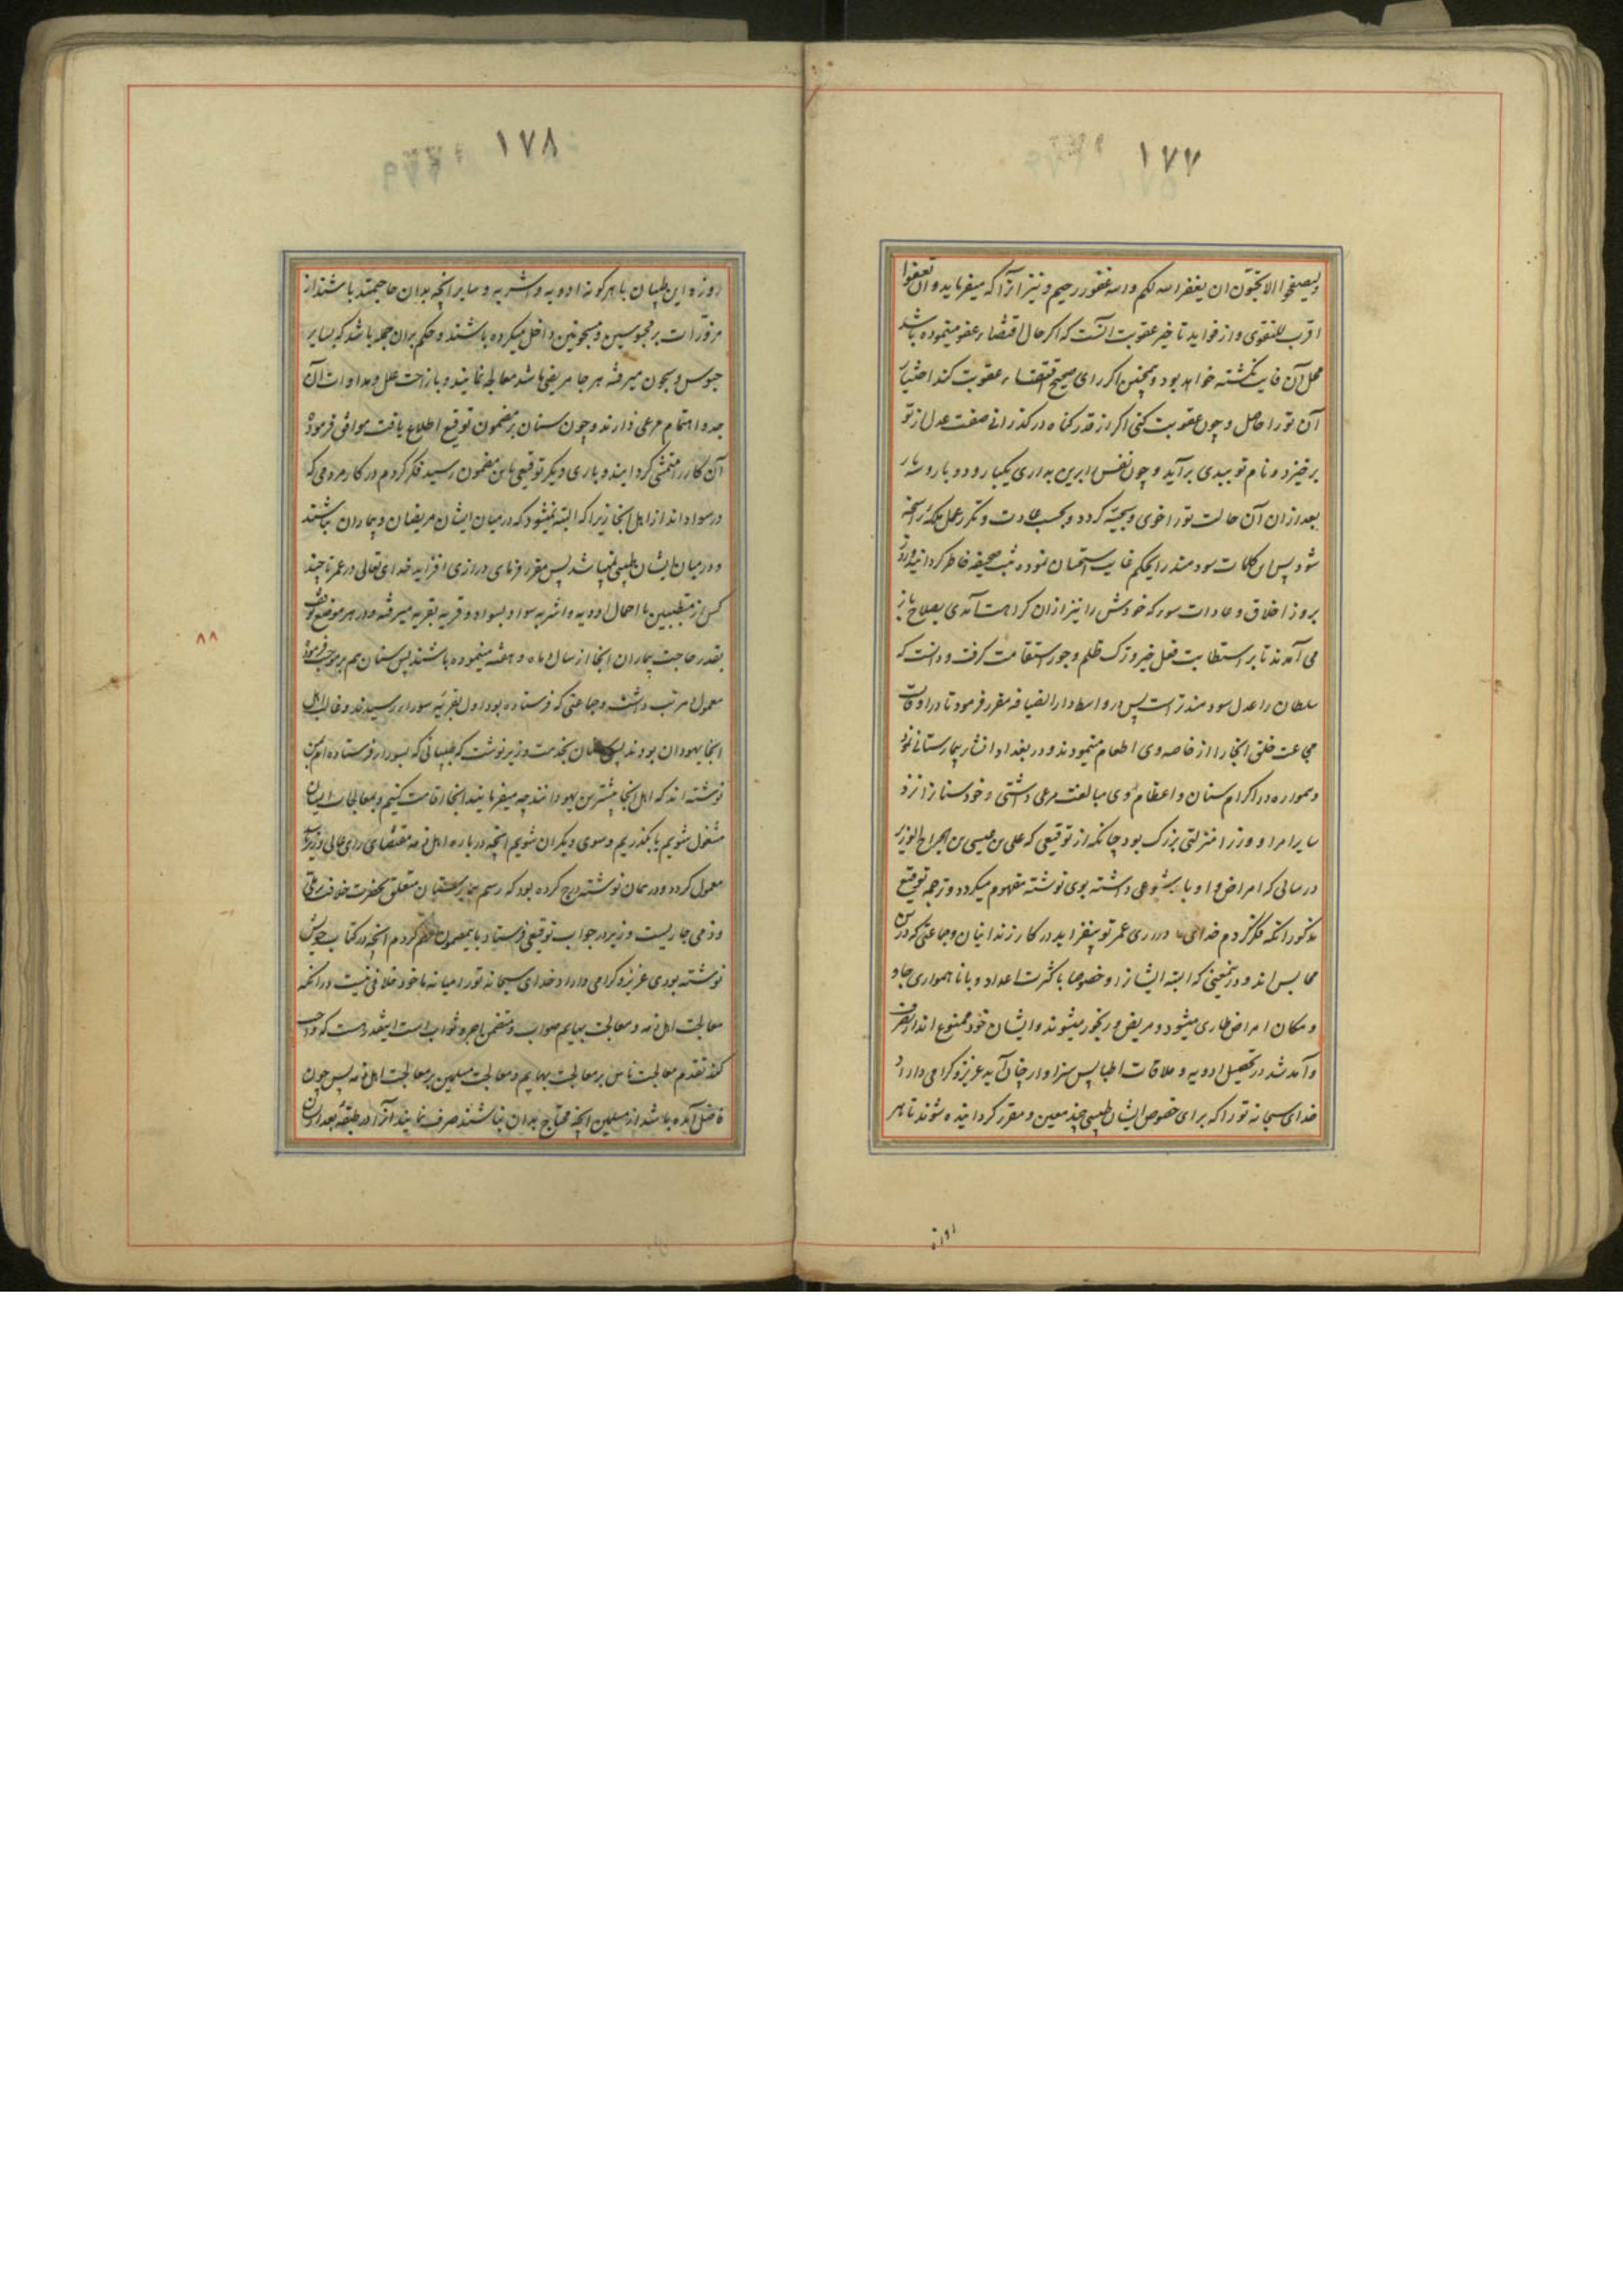 ۱۷۷
ولیصفحوا الا تحبون ان یغفر الله لکم والله غفور رحیم و نیز از آنرا که میفرماید وان تعفوا
اقرب للتقوی و از فواید تاخیر عقوبت آنست که اگر حال اقتضاء عفو مینموده باشد
محل آن فایت نگشته خواهد بود و همچنین اگر رای صحیح اقتضاء عقوبت کند اختیار
آن تو را حاصل و چون عقوبت کنی اگر از قدر گناه درگذرانی صفت عدل از تو
برخیزد و نام تو ببدی برآید و چون نفس را برین بداری یکبار و دو بار و سه بار
بعد از ان آن حالت تو را خوی و سجیه گردد و بحسب عادت و تکرر عمل ملکه راسخه
شود پس این کلمات سودمند را بحکم غایت استحسان نموده ثبت صحیفه خاطر گردانید و روز
بروز اخلاق و عادات سور که خودش را نیز از ان کراهت آمدی بصلاح باز
می آمدند تا بر استطابت فعل خیر و ترک ظلم و جور استقامت گرفت و دانست که
سلطان را عدل سودمندتر است پس در واسط دار الضیافه مقرر فرمود تا در اوقات
مجاعت خلق آنجا را از خاصه وی اطعام مینمودند و در بغداد انشار بیمارستانی نمود
و همواره در اکرام سنان و اعظام وی مبالغت مرعی داشتی و خود سنان را نزد
سایر امرا و وزرا منزلتی بزرگ بود چنانکه از توقیعی که علی بن عیسی بن الجراح الوزیر
در سالی که امراض و اوبا شیوعی داشته بوی نوشته مفهوم میگردد و ترجمه توقیع
مذکور آنکه فکر کردم خدای درازی عمر تو بیفزاید در کار زندانیان و جماعتی که درین
محابس اند و در تیقنی که البته ایشان را و خصوصا با کثرت اعداد و با ناهمواری جا و
و مکان امراض طاری میشود و مریض و رنجور میشوند و ایشان خود ممنوع اند از تصرف
و آمد شد در تحصیل ادویه و ملاقات اطبا پس سزاوار چنان آید عزیز و گرامی داراد
خدای سبحانه تو را که برای خصوص ایشان طبیبی چند معین و مقرر گردانیده شوند تا هر
روزه
۱۷۸
روزه این طبیبان با هر گونه ادویه و اشربه و سایر آنچه بدان حاجتمند باشند از
مزورات بر محبوسین و مسجونین داخل میکرده باشند و حکم بران جمله باشد که بسایر
حبوس و سجون میرفته هر جا مریضی باشد معالجه نمایند و بازاحت علل و مداوات آن
جد و اهتمام مرعی دارند و چون سنان بر مضمون توقیع اطلاع یافت موافق فرموده
آن کار را متمشی گردانید و باری دیگر توقیعی باین مضمون رسید فکر کردم در کار مردمی که
در سواد اند از اهل آنجا زیرا که البته نمیشود که در میان ایشان مریضان و بیماران نباشند
و در میان ایشان طبیبی نمیباشد پس مقرر فرمای درازی افزاید خدای تعالی در عمر تا چند
کس از متطببین با احمال ادویه و اشربه سواد بسواد و قریه بقریه میرفته و در هر موضع توقف
بقدر حاجت بیماران آنجا از سال و ماه و هفته مینموده باشند پس سنان هم بر موجب فرموده
معمول مرتب داشت و جماعتی که فرستاده بود اول بقریه سورا در رسیدند و غالب اهل
آنجا یهودان بودند پس سنان بخدمت وزیر نوشت که طبیبانی که بسورا فرستاده ام بمن
نوشته اند که اهل آنجا بیشترین یهود اند چه میفرمایند آنجا اقامت کنیم و بمعالجات ایشان
مشغول شویم یا بگذریم و سوی دیگران شویم آنچه در باره اهل ذمه مقتضای رای عالی وزیر است
معمول گردد و در همان نوشته درج کرده بود که رسم بیمارستان متعلق بحضرت خلافت بر ملی
و ذمی جاریست وزیر در جواب توقیعی فرستاد باینمضمون فهم کردم آنچه در کتاب خویش
نوشته بودی عزیز و گرامی داراد خدای سبحانه تو را میانه ما خود خلافی نیست در آنکه
معالجت اهل ذمه و معالجت بهایم صواب و متضمن اجر و ثواب است اینقدر هست که واجب
کند تقدم معالجت ناس بر معالجت بهایم و معالجت مسلمین بر معالجت اهل ذمه پس چون
فاضل آمده باشد از مسلمین آنچه محتاج بدان نباشند صرف نمایند آنرا در طبقه بعد از ایشان
۸۸